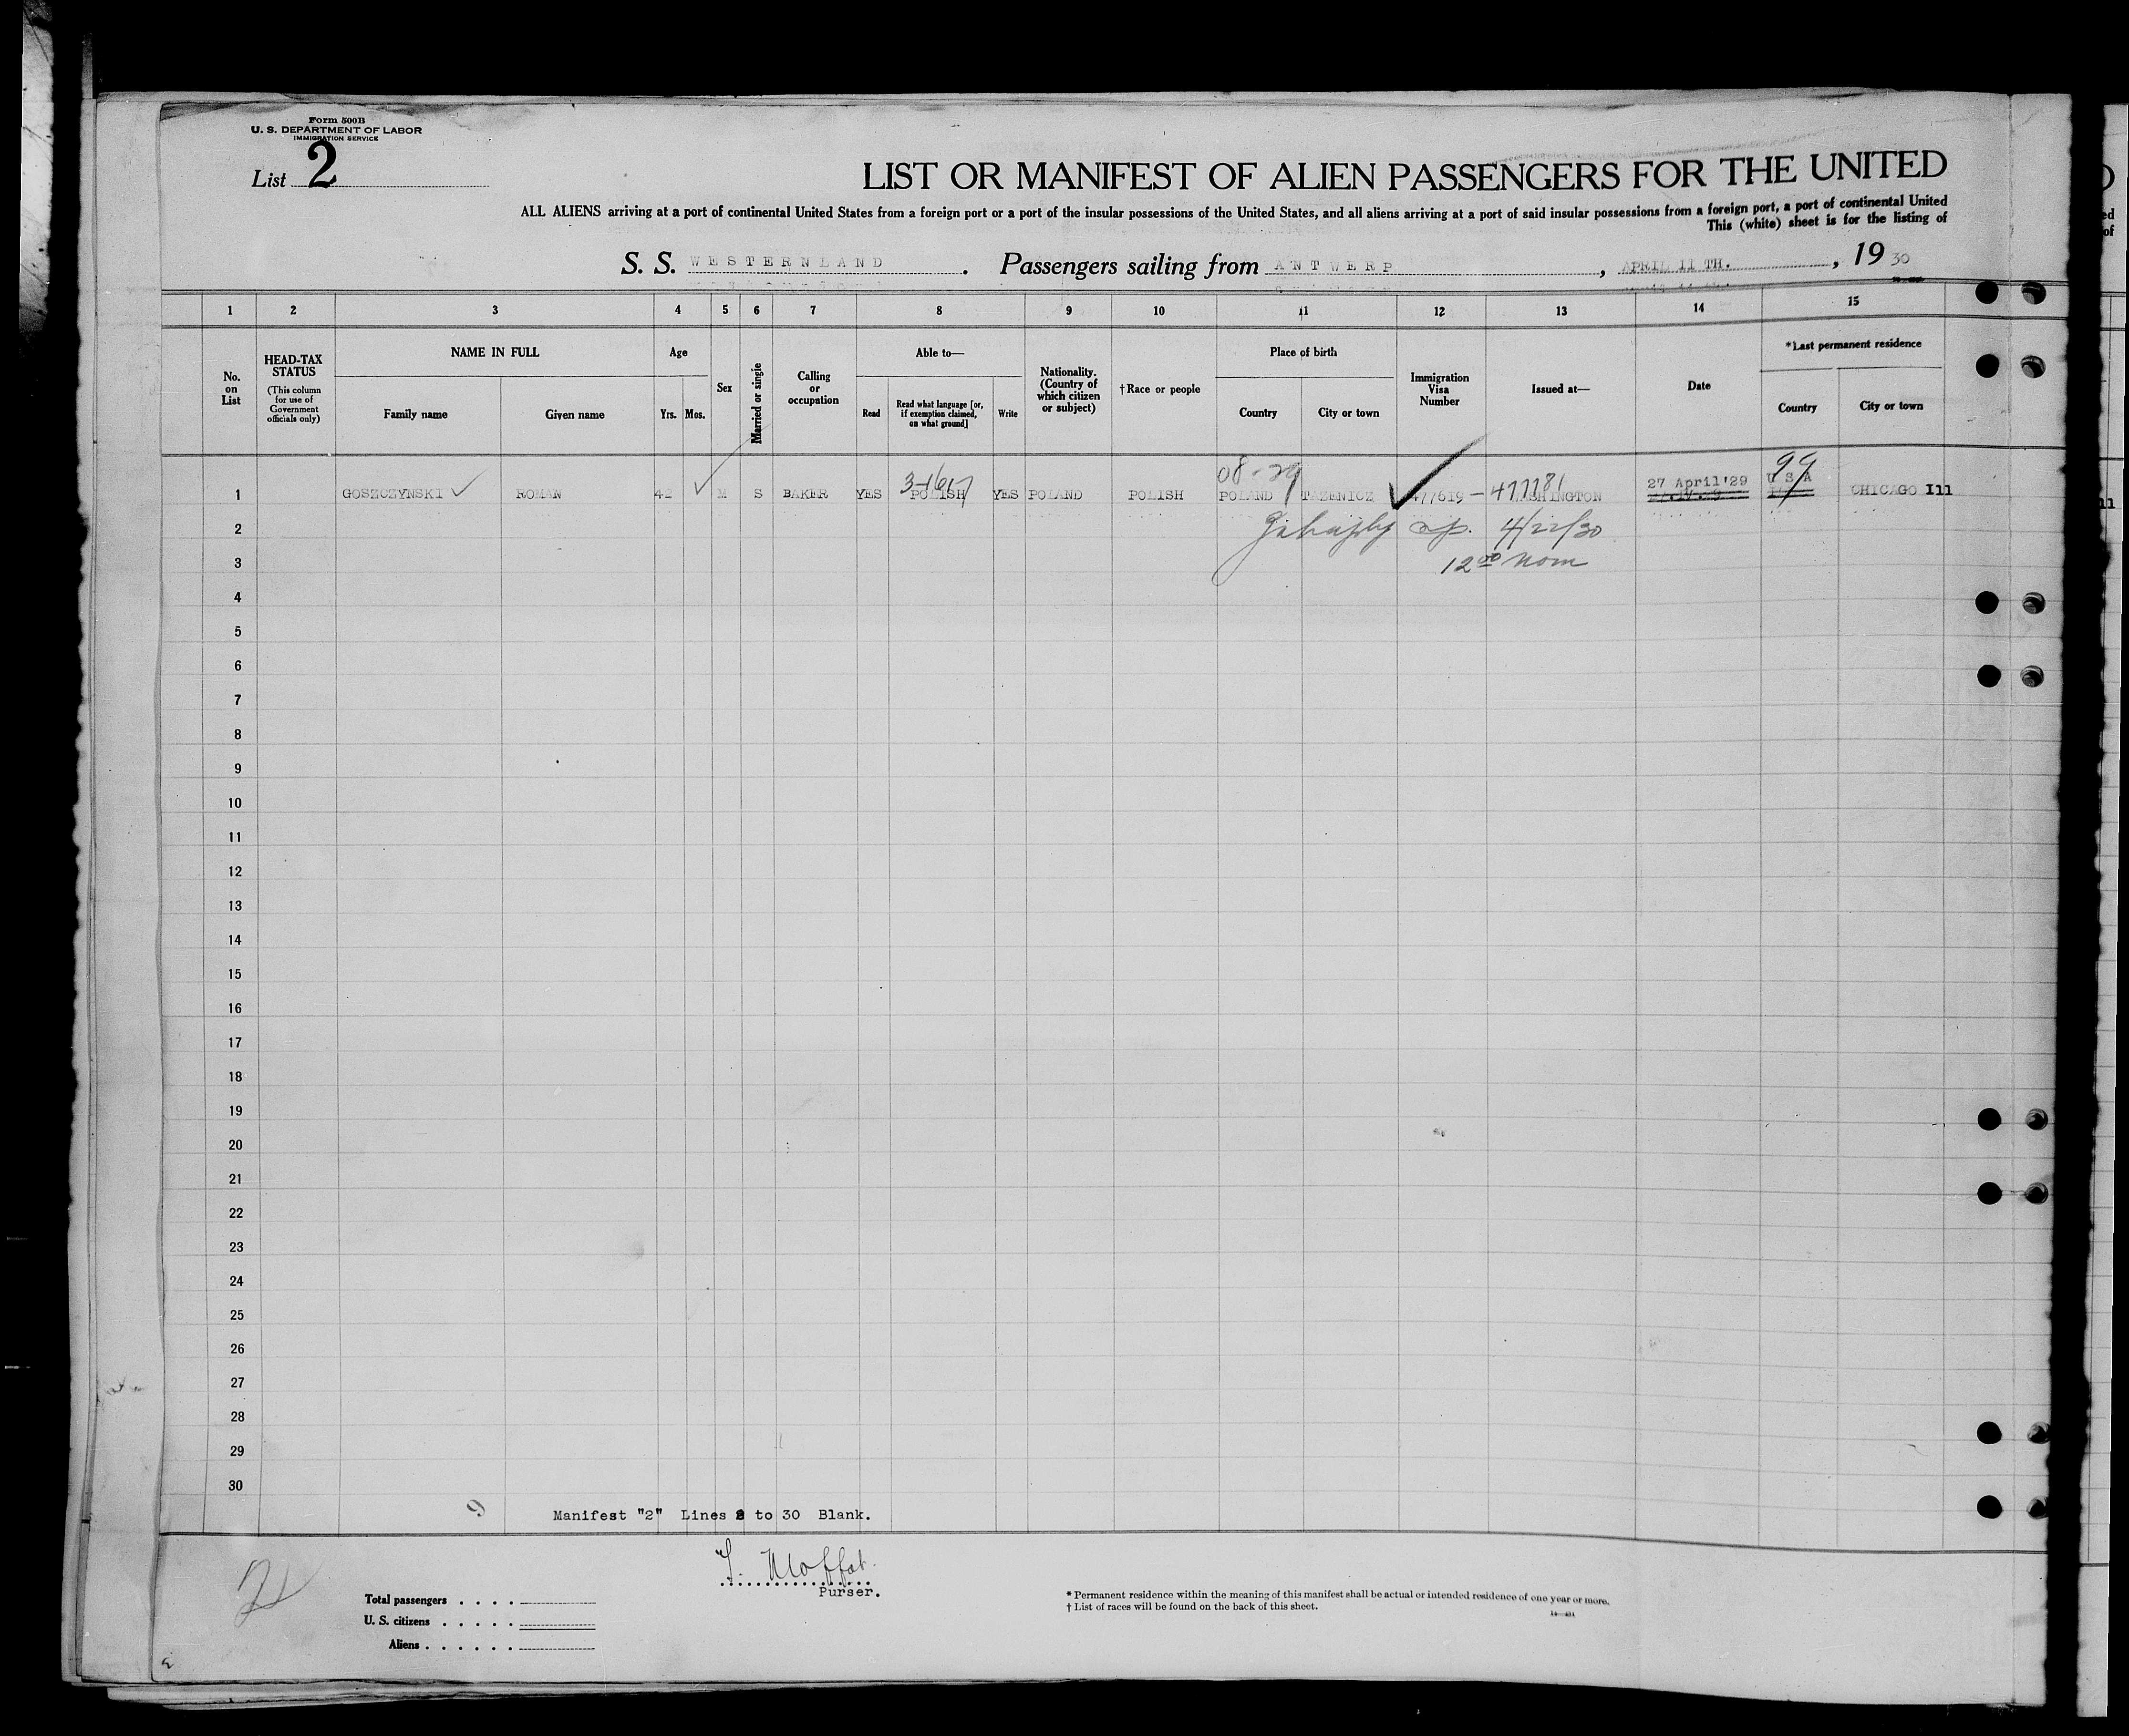 Form 500B
U. S. DEPARTMENT OF LABOR
IMMIGRATION SERVICE
List 2
LIST OR MANIFEST OF ALIEN PASSENGERS FOR THE UNITED
ALL ALIENS arriving at a port of continental United States from a foreign port or a port of the insular possessions of the United States, and all aliens arriving at a port of said insular possessions from a foreign port, a port of continental United
This (white) sheet is for the listing of
S. S. WESTERNLAND . Passengers sailing from ANTWERP , APRIL 11 TH. , 19 30
1 2 3 4 5 6 7 8 9 10 11 12 13 14 15
No. on List
HEAD-TAX STATUS
(This column for use of Government officials only)
NAME IN FULL
Family name Given name
Age
Yrs. Mos.
Sex
Married or single
Calling or occupation
Able to—
Read
Read what language [or, if exemption claimed, on what ground]
Write
Nationality. (Country of which citizen or subject)
†Race or people
Place of birth
Country City or town
Immigration Visa Number
Issued at—
Date
*Last permanent residence
Country City or town
08-29 99
1 GOSZCZYNSKI ROMAN M S BAKER YES POLISH YES POLAND POLISH POLAND 477619 - 477781 27 April'29 U S A CHICAGO Ill
2 4/22/30
3 12 00 noon
4
5
6
7
8
9
10
11
12
13
14
15
16
17
18
19
20
21
22
23
24
25
26
27
28
29
30
Manifest "2" Lines 2 to 30 Blank.
Moffat.
Purser.
Total passengers
U. S. citizens
Aliens
* Permanent residence within the meaning of this manifest shall be actual or intended residence of one year or more.
† List of races will be found on the back of this sheet.